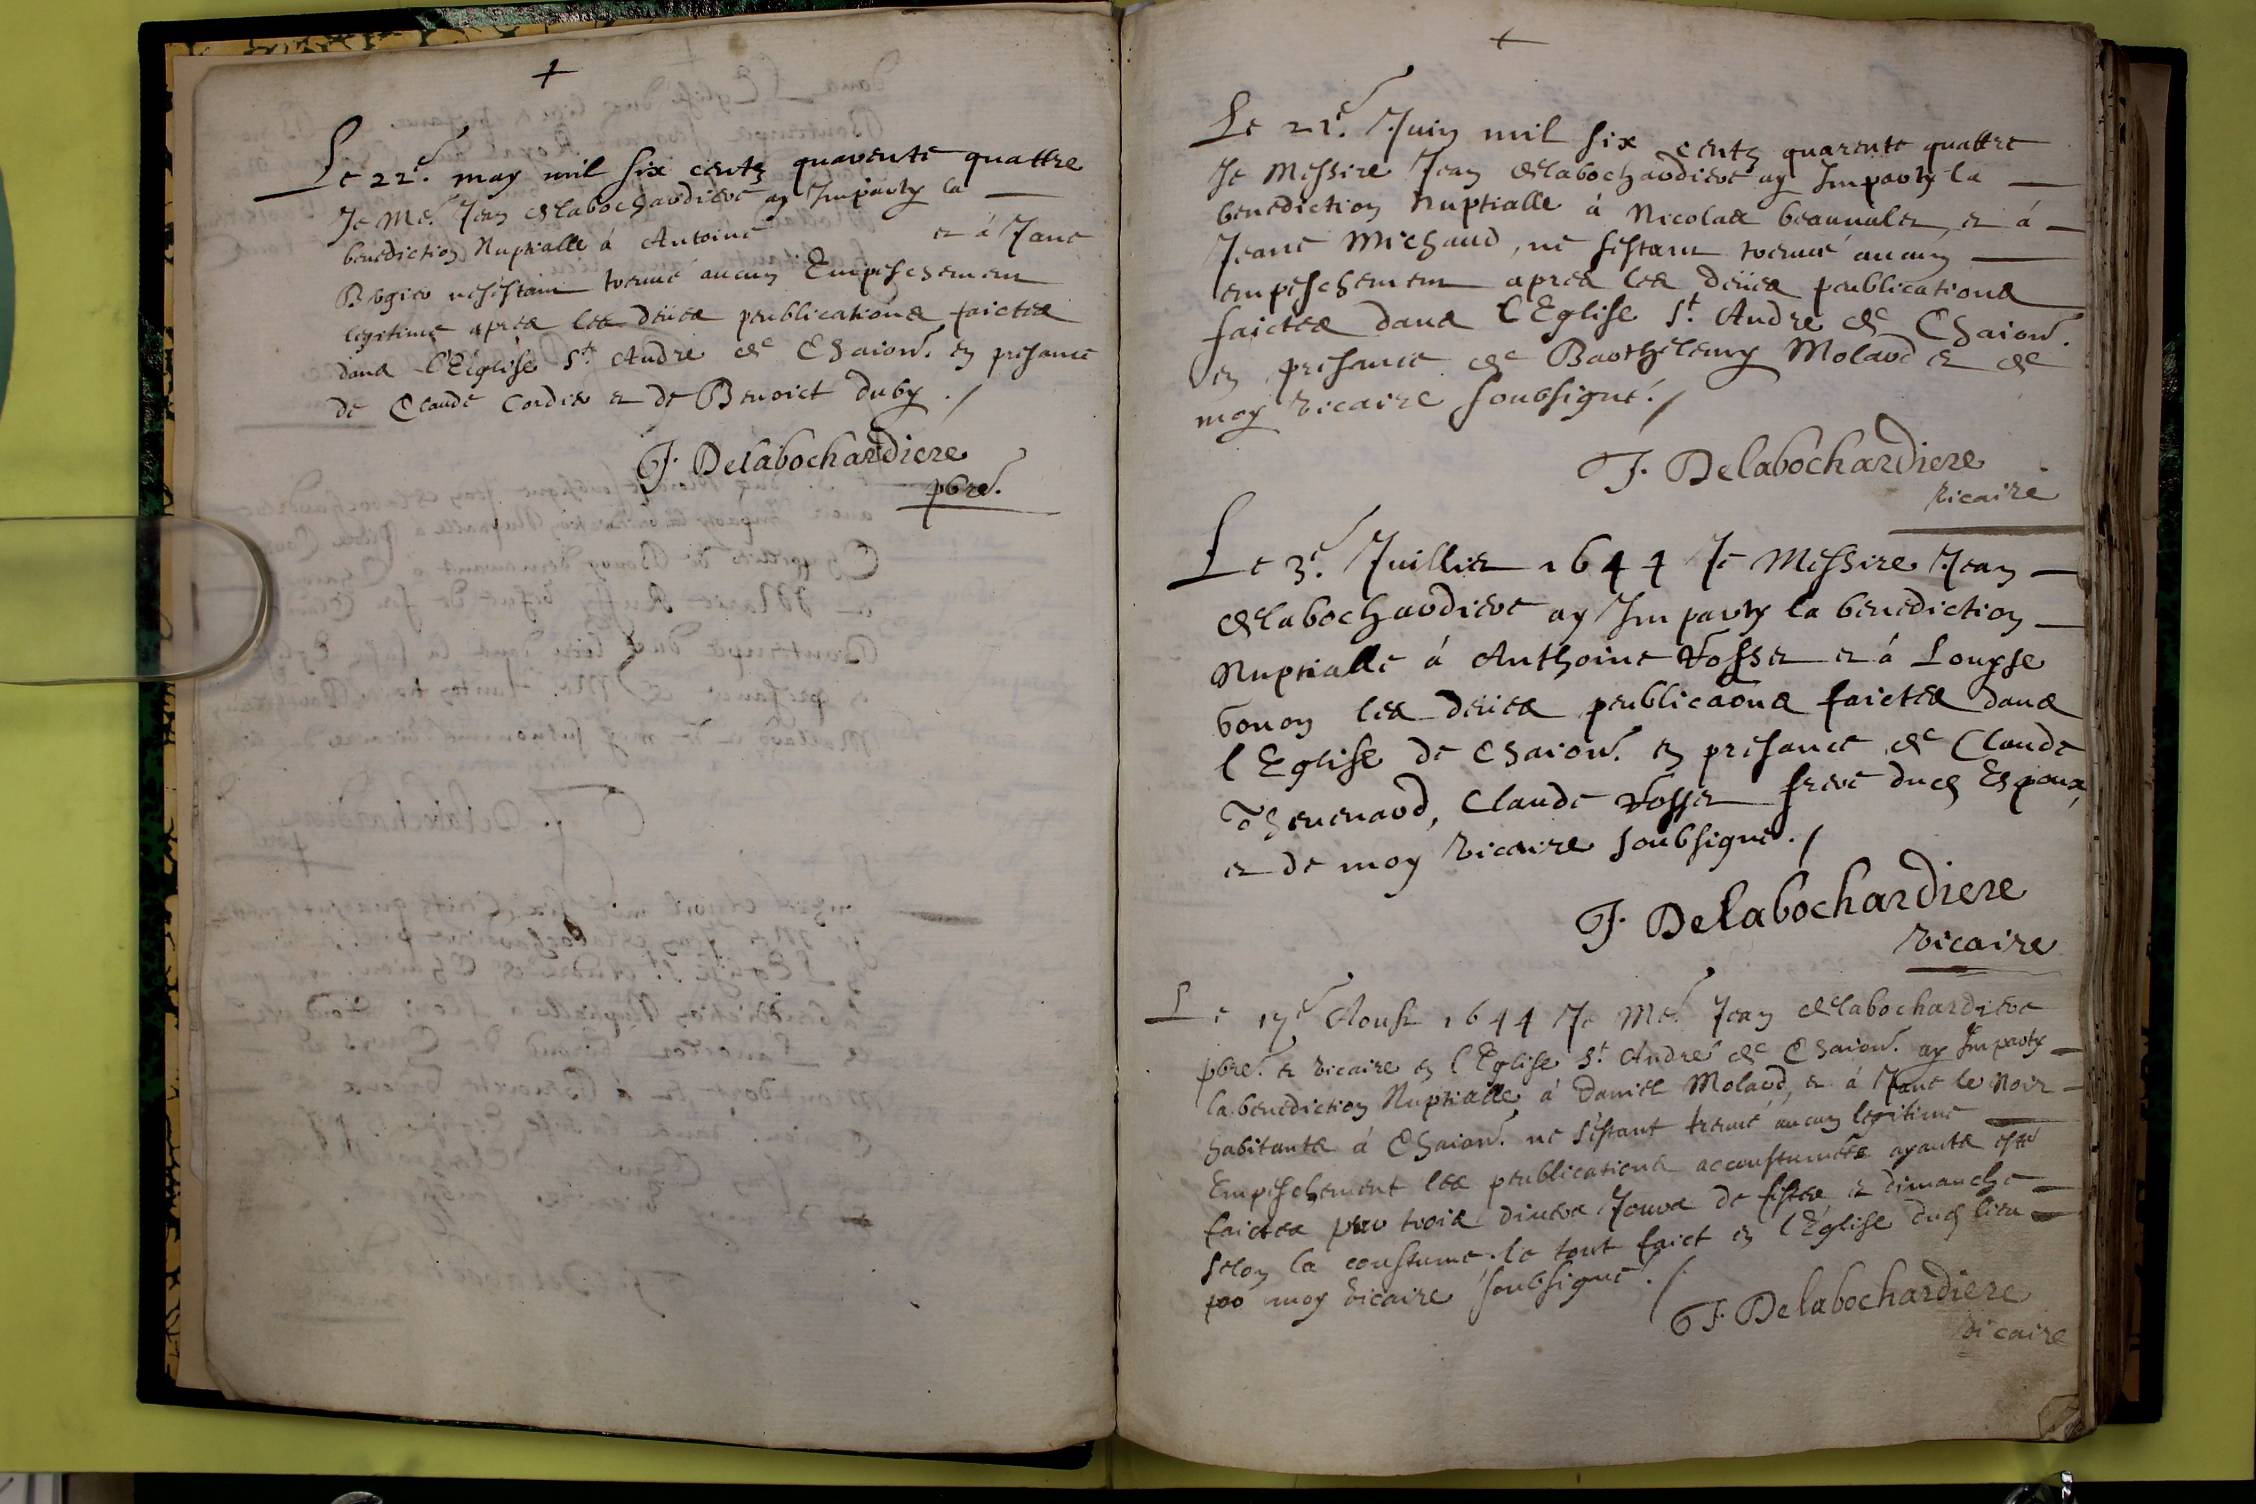 +
Le 22e. may mil six centz quarente quattre
Je Mre. Jean Delabochardiere ay Imparty la
benediction Nuptialle á Antoine et á Jane
Bergier néséstant treuué aucun Empeschement
legitime apres les deües peublications faictes
dans l'Eglise St. André de Chaion. en presance
de Claude Cordier et de Benoict duby ./
J. Delabochardiere
pbre.
+
Le 21e. Juin mil six centz quarente quattre
Je Messire Jean Delabochardiere ay Imparty la
benediction nuptialle á Nicolas beauualet, et á
Jeane Michaud, ne sestant treuué aucun
empeschement apres les deües peublications
faictes dans l'Eglise St. Andre de Chaion.
en presance de Barthelemy Molard et de
moy vicaire soubsigné./
J. Delabochardiere
vicaire
Le 3e. Juillet 1644 Je Messire Jean
Delabochardiere ay Imparty la benediction
Nuptialle á Anthoine Vosset et á Louyse
bonon les deües peublicaons faictes dans
l'Eglise de Chaion. en presance de Claude
Thevenard, Claude Vosset frere dud Espoux,
et de moy vicaire soubsigné./
J. Delabochardiere
vicaire
Le 17e Aoust 1644 Je Mre. Jean Delabochardiere
pbre. et vicaire en l'Eglise St. André de Chaion. ay Imparty
la benediction Nuptialle á Daniel Molard, et á Jane le Noir
habitants á Chaion. ne séstant treuué aucun legitime
Empeschement les peublications accoustumées ayants esté
faictes par trois diuers Jours de festes et dimanche
selon la coustume. le tout faict en l'Eglise dud lieu
par moy vicaire soubsigné./
J. Delabochardiere
vicaire